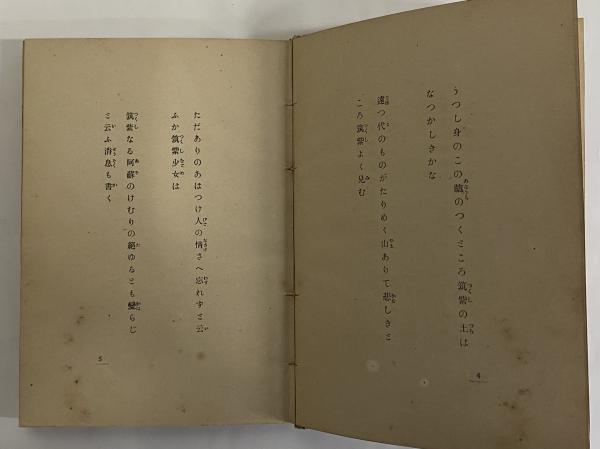 うつし身のこの蹠のつくところ筑紫の土は
なつかしきかな
遠つ代のものがたりめく山ありて悲しきと
ころ筑紫よく見む
4
ただありのあはつけ人の情さへ忘れずと云
ふか筑紫少女は
筑紫なる阿蘇のけむりの絕ゆるとも變らじ
と云ふ消息も書く
5